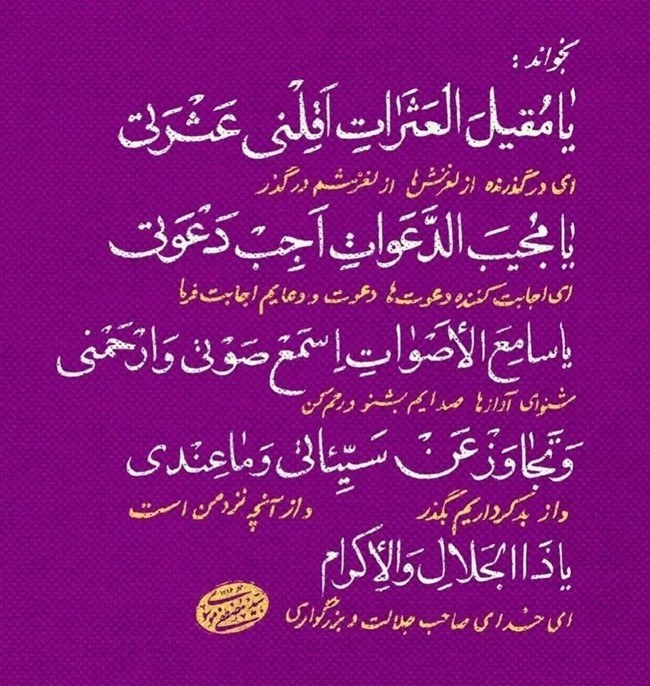 بخواند :
یٰا مُقیلَ الْعَثَرٰاتِ اَقِلْنی عَثْرَتی
ای درگذرنده از لغزش‌ها از لغزشم درگذر
یٰا مُجیبَ الدَّعَوٰاتِ اَجِبْ دَعْوَتی
ای اجابت کننده دعوت‌ها دعوت و دعایم اجابت فرما
یا سامِعَ الأَصْوٰاتِ اِسْتَمِعْ صَوْتی وَارْحَمْنی
شنوای آوازها صدایم بشنو و رحم کن
وَ تَجٰاوَزْ عَنْ سَیِّئاتی وَ مٰا عِنْدی
و از بدکرداریم بگذر و از آنچه نزد من است
یا ذَا الجَلالِ وَالْإِکرام
ای خدای صاحب جلالت و بزرگواری
سید مصطفی موسوی